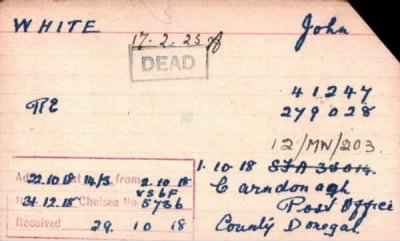 WHITE John
17-2-25
DEAD
41247
RE 279028
12/MW/203.
1.10.18
22.10.18 14/3 from 2.10.18
Carndonagh
31.12.18 Chelsea No. 5736
Post Office
Received 29. 10 18
County Donegal